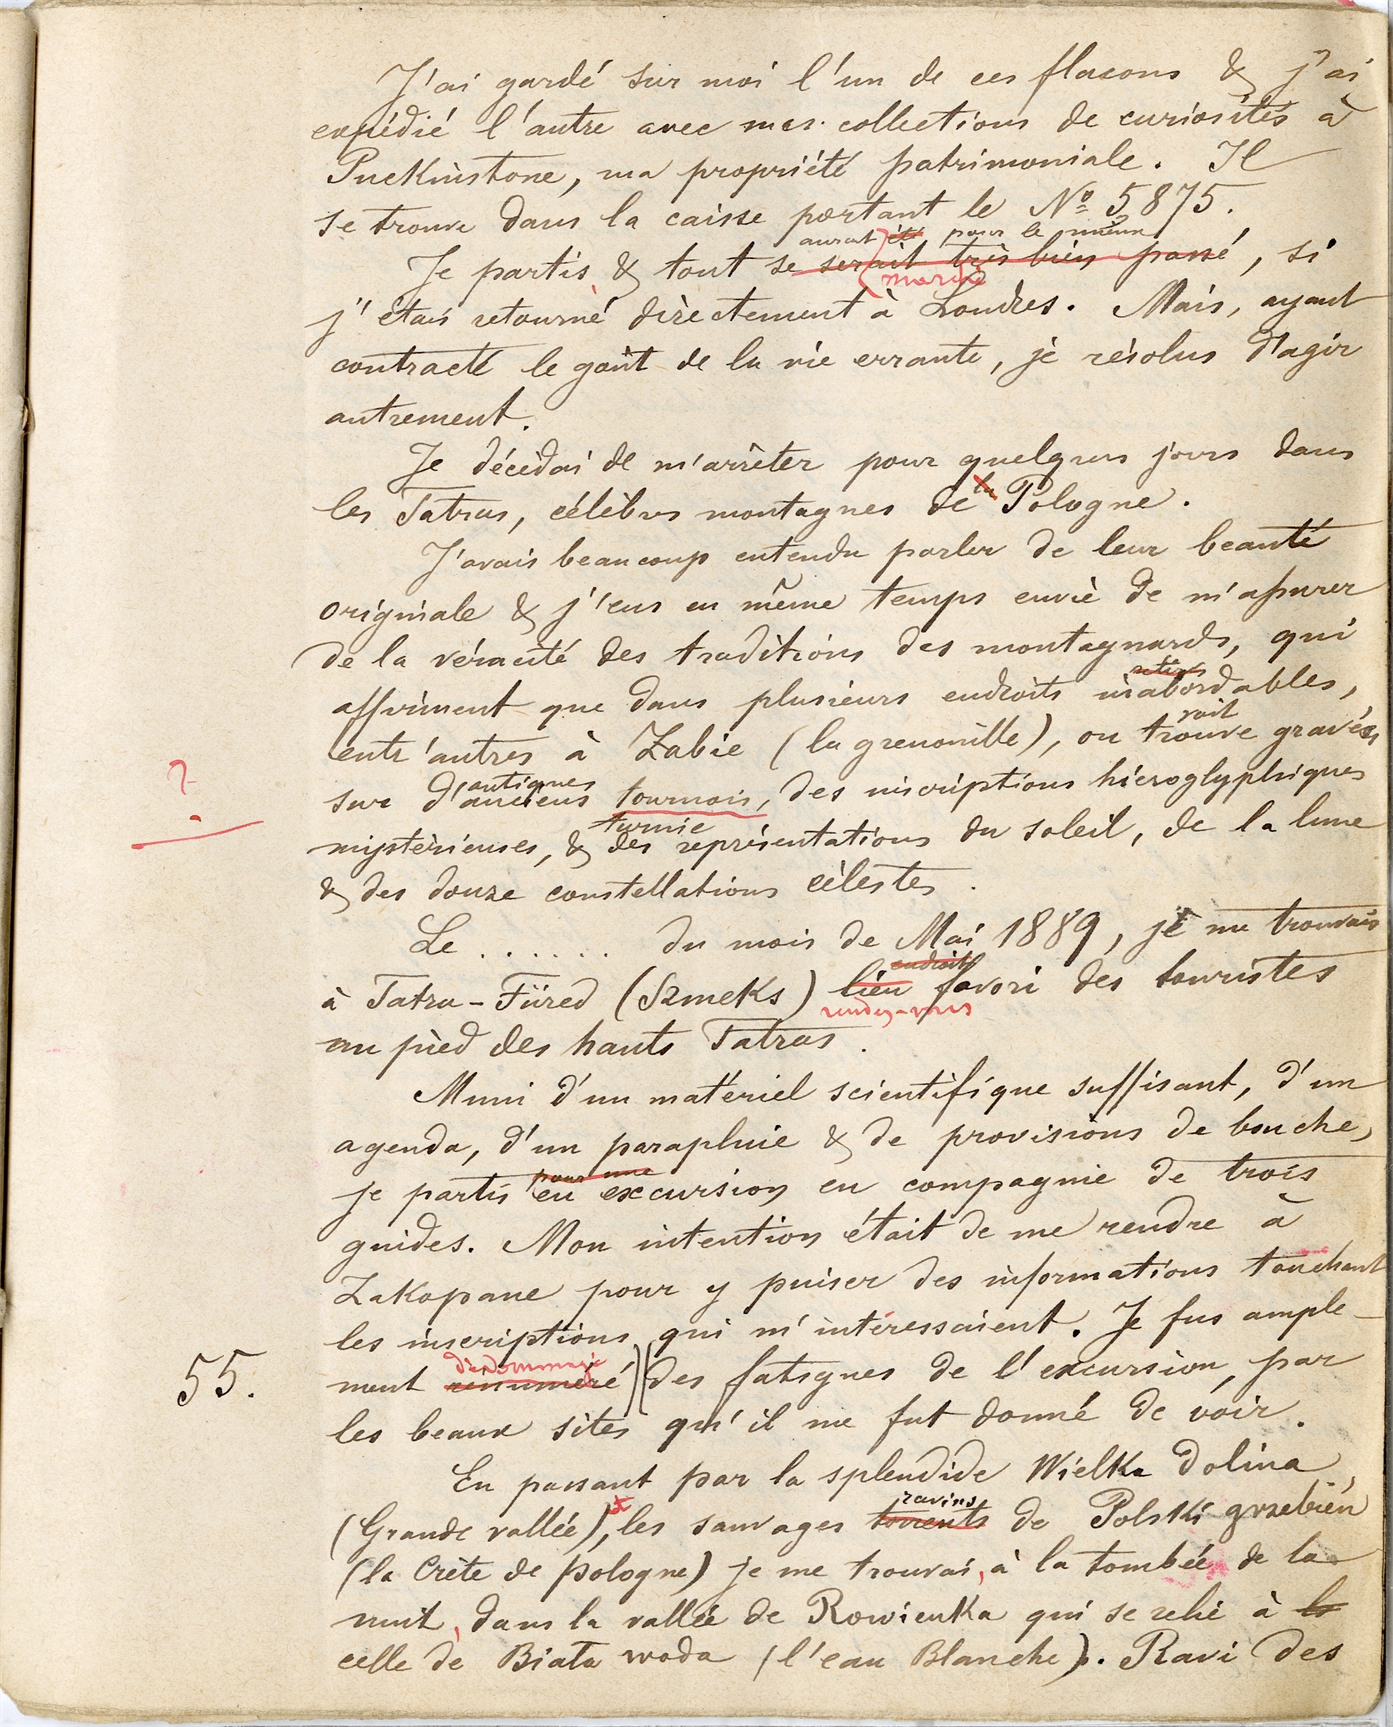 J'ai gardé sur moi l'un de ces flacons & j'ai
expédié l'autre avec mes collections de curiosités à
Puckinstone, ma propriété patrimoniale. Il
se trouve dans la caisse portant le No 5875.
aurait été pour le mieux
Je partis & tout se serait très bien passé, si
marché
j'étais retourné directement à Londres. Mais, ayant
contracté le goût de la vie errante, je résolus d'agir
autrement.
Je décidai de m'arrêter pour quelques jours dans
les Tatras, célèbres montagnes de la Pologne.
J'avais beaucoup entendu parler de leur beauté
originale & j'eus en même temps envie de m'assurer
de la véracité des traditions des montagnards, qui
affirment que dans plusieurs endroits inabordables,
voit
entr'autres à Zabie (la grenouille), on trouve gravés,
?
antiques
sur d'anciens tournois, des inscriptions hiéroglyphiques
turnie
mystérieuses, & des représentations du soleil, de la lune
& des douze constellations célestes.
Le ....... du mois de Mai 1889, je me trouvais
endroit
à Tatra-Füred (Szmeks) lieu favori des touristes
rendez-vous
au pied des hauts Tatras.
Muni d'un matériel scientifique suffisant, d'un
agenda, d'un parapluie & de provisions de bouche,
pour une
je partis en excursion en compagnie de trois
guides. Mon intention était de me rendre à
Zakopane pour y puiser des informations touchant
les inscriptions qui m'intéressaient. Je fus ample-
dédommagé
55.
ment rénuméré des fatigues de l'excursion, par
les beaux sites qu'il me fut donné de voir.
En passant par la splendide Wielka Dolina
ravins
(Grande vallée), et les sauvages torrents de Polski grzebień
(la Crète de pologne) je me trouvai, à la tombée de la
nuit, dans la vallée de Rowienka qui se relie à la
celle de Biała woda (l'eau Blanche). Ravi des